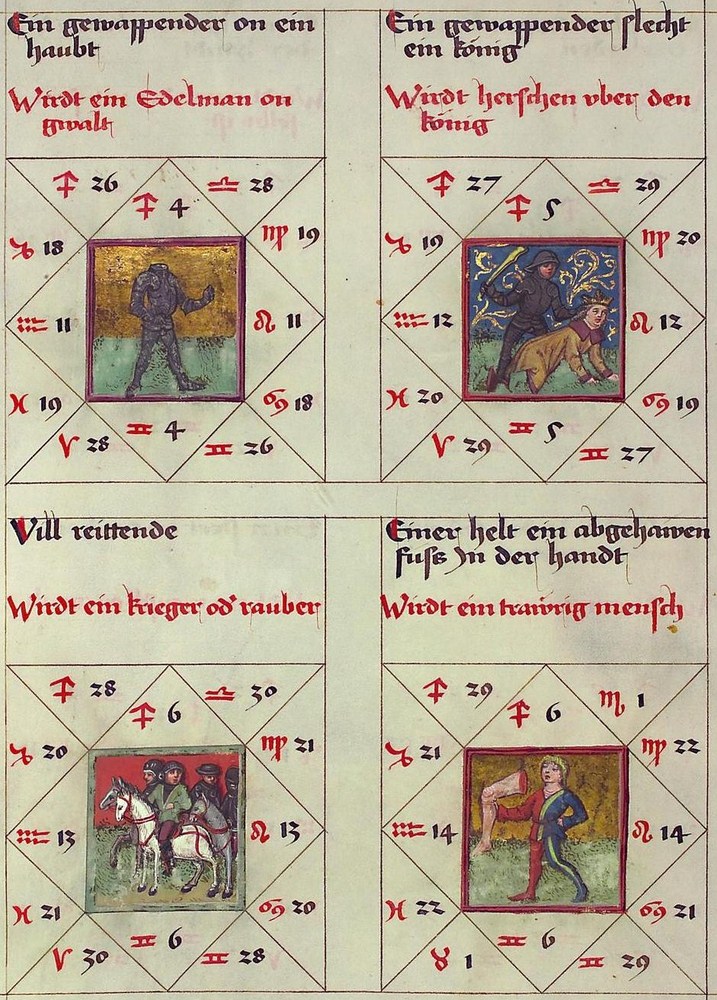 Ein gewappender on ein
haubt
Wirdt ein Edelman on
gwalt
♐ 26 ♎ 28
♐ 4
♑ 18 ♍ 19
♒ 11 ♌ 11
♓ 19 ♋ 18
♈ 28 ♊ 4 ♊ 26
Ein gewappender slecht
ein könig
Wirdt herschen vber den
könig
♐ 27 ♎ 29
♐ 5
♑ 19 ♍ 20
♒ 12 ♌ 12
♓ 20 ♋ 19
♈ 29 ♊ 5 ♊ 27
Vill reittende
Wirdt ein krieger od' rauber
♐ 28 ♎ 30
♐ 6
♑ 20 ♍ 21
♒ 13 ♌ 13
♓ 21 ♋ 20
♈ 30 ♊ 6 ♊ 28
Einer helt ein abgehawen
fuss Jn der handt
Wirdt ein trawrig mensch
♐ 29 ♏ 1
♐ 6
♑ 21 ♍ 22
♒ 14 ♌ 14
♓ 22 ♋ 21
♉ 1 ♊ 6 ♊ 29